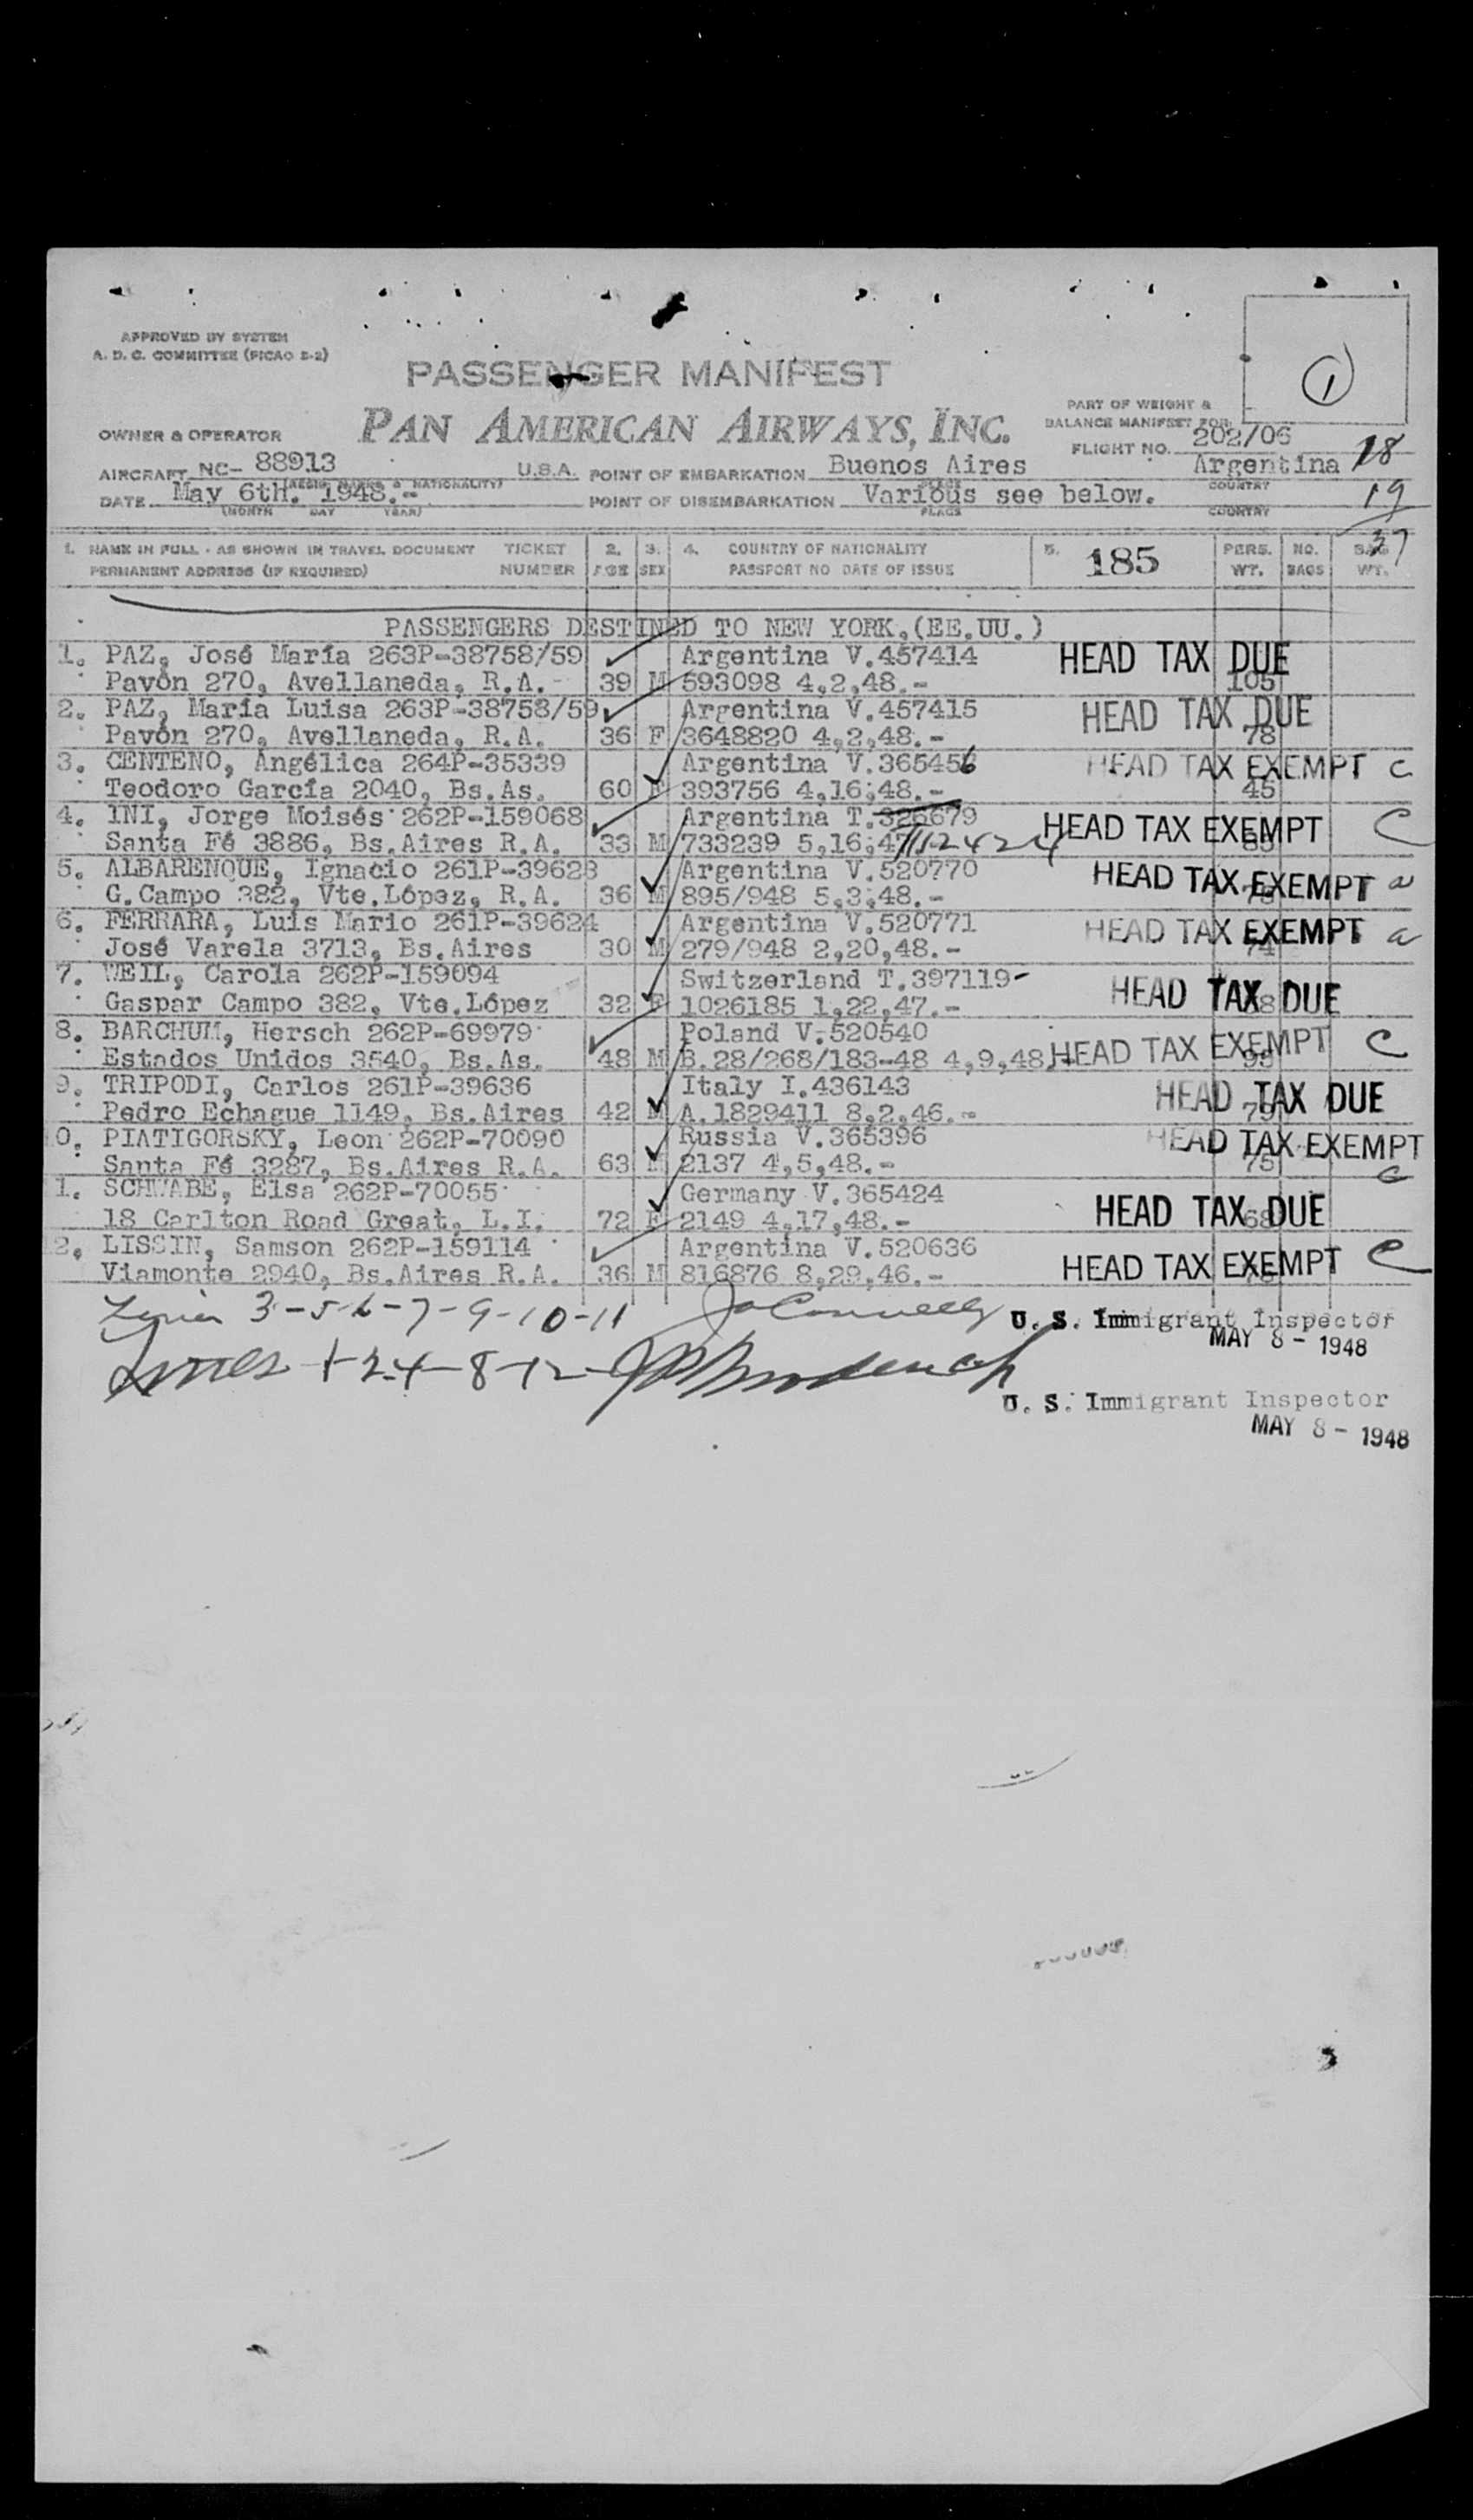 APPROVED BY SYSTEM
A. D. C. COMMITTEE (PICAO S-2)
①
PASSENGER MANIFEST
PAN AMERICAN AIRWAYS, INC.
PART OF WEIGHT &
BALANCE MANIFEST FOR
OWNER & OPERATOR
FLIGHT NO. 202/06
AIRCRAFT NC- 88913 U.S.A. POINT OF EMBARKATION Buenos Aires Argentina 18
(REGIS. MARKS & NATIONALITY) PLACE COUNTRY
DATE May 6th. 1948.- POINT OF DISEMBARKATION Various see below. 19
(MONTH DAY YEAR) PLACE COUNTRY
37
1. NAME IN FULL - AS SHOWN IN TRAVEL DOCUMENT TICKET 2. 3. 4. COUNTRY OF NATIONALITY 5. 185 PERS. NO. BAG
PERMANENT ADDRESS (IF REQUIRED) NUMBER AGE SEX PASSPORT NO DATE OF ISSUE WT. BAGS WT.
PASSENGERS DESTINED TO NEW YORK,(EE.UU.)
1. PAZ, José María 263P-38758/59 Argentina V.457414 HEAD TAX DUE
Pavón 270, Avellaneda, R.A.- 39 M 593098 4,2,48.- 105
2. PAZ, María Luisa 263P-38758/59 Argentina V.457415 HEAD TAX DUE
Pavón 270, Avellaneda, R.A. 36 F 3648820 4,2,48.- 78
3. CENTENO, Angélica 264P-35339 Argentina V.365456 HEAD TAX EXEMPT C
Teodoro García 2040, Bs.As. 60 F 393756 4,16,48.- 45
4. INI, Jorge Moisés 262P-159068 Argentina T.326679 HEAD TAX EXEMPT C
Santa Fé 3886, Bs.Aires R.A. 33 M 733239 5,16,47
5. ALBARENQUE, Ignacio 261P-39628 Argentina V.520770 HEAD TAX EXEMPT a
G.Campo 382, Vte.López, R.A. 36 M 895/948 5,3,48.-
6. FERRARA, Luis Mario 261P-39624 Argentina V.520771 HEAD TAX EXEMPT a
José Varela 3713, Bs.Aires 30 M 279/948 2,20,48.- 74
7. WEIL, Carola 262P-159094 Switzerland T.397119- HEAD TAX DUE
Gaspar Campo 382, Vte.López 32 F 1026185 1,22,47.-
8. BARCHUM, Hersch 262P-69979 Poland V.520540 HEAD TAX EXEMPT C
Estados Unidos 3540, Bs.As. 48 M B.28/268/183-48 4,9,48.
9. TRIPODI, Carlos 261P-39636 Italy I.436143 HEAD TAX DUE
Pedro Echague 1149, Bs.Aires 42 M A.1829411 8,2,46.- 79
0. PIATIGORSKY, Leon 262P-70090 Russia V.365396 HEAD TAX EXEMPT
Santa Fé 3287, Bs.Aires R.A. 63 M 2137 4,5,48.- 75 C
1. SCHWABE, Elsa 262P-70055 Germany V.365424 HEAD TAX DUE
18 Carlton Road Great, L.I. 72 F 2149 4,17,48.- 68
2. LISSIN, Samson 262P-159114 Argentina V.520636 HEAD TAX EXEMPT C
Viamonte 2940, Bs.Aires R.A. 36 M 816876 8,29,46.-
3-5-6-7-9-10-11 U. S. Immigrant Inspector
MAY 8 - 1948
U. S. Immigrant Inspector
MAY 8 - 1948